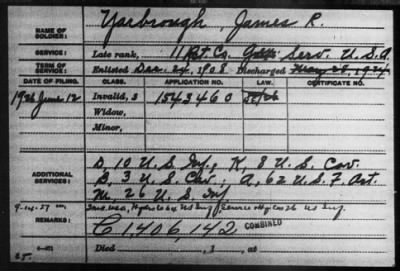 NAME OF SOLDIER: Yarbrough, James R.
SERVICE: Late rank, 11 Rct. Co. Serv. U.S.A.
TERM OF SERVICE: Enlisted Dec. 24, 1908. Discharged May 28, 1924
DATE OF FILING. CLASS. APPLICATION NO. LAW. CERTIFICATE NO.
1926 June 12 Invalid, S 1543460
Widow,
Minor,
D, 10 U.S. Inf., K, 8 U.S. Cav.
ADDITIONAL SERVICES: B, 3 U.S. Cav., A, 62 U.S. F. Art.
M, 26 U.S. Inf
9-14-27
REMARKS: C 1,406,142 COMBINED
Died , 1 , at